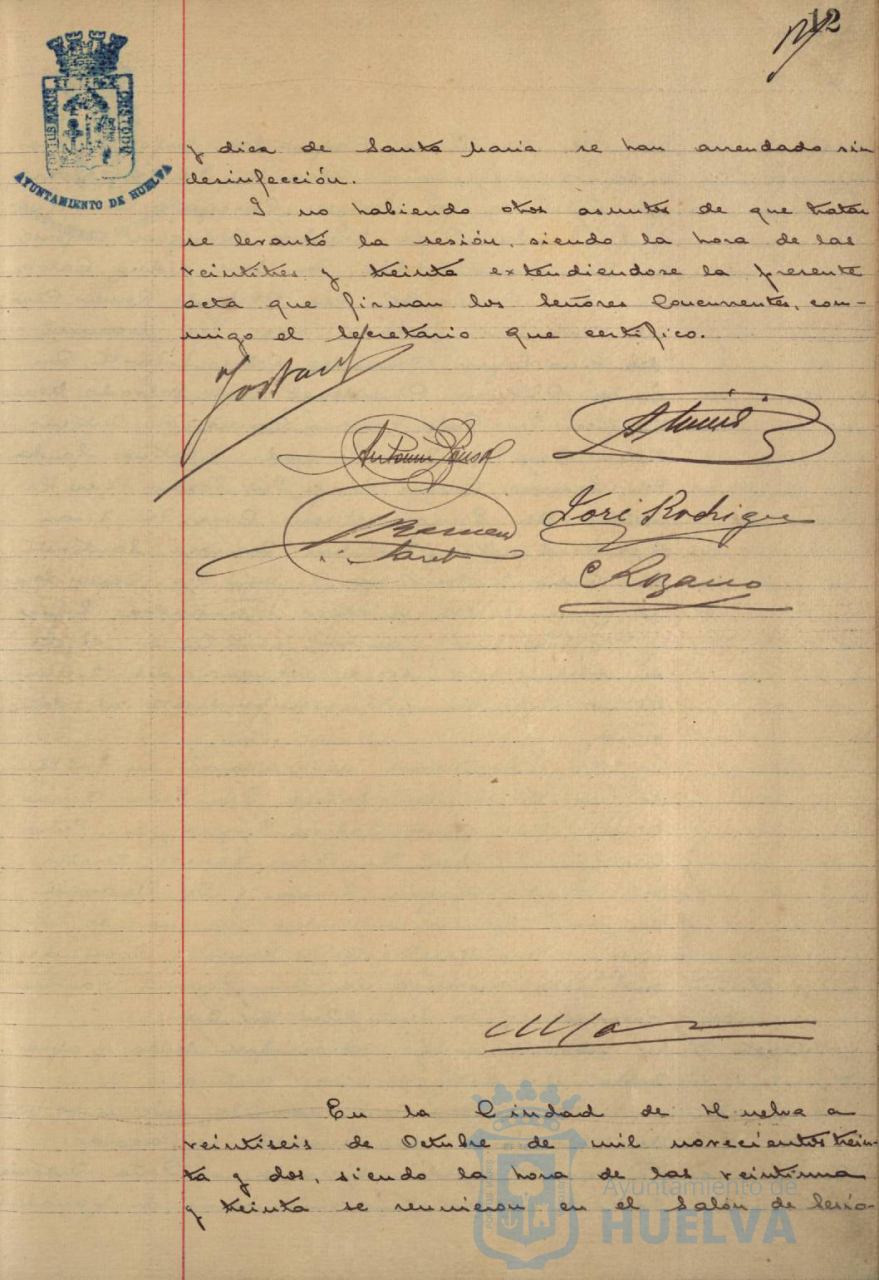 12
AYUNTAMIENTO DE HUELVA
y diez de Santa María se han arrendado sin
desinfección.
Y no habiendo otros asuntos de que tratar
se levantó la sesión, siendo la hora de las
veintitres y treinta extendiendose la presente
acta que firman los Señores Concurrentes, con-
migo el Secretario que certifico.
Antonio
José Rodriguez
C Lozano
En la Ciudad de Huelva a
veintiseis de Octubre de mil novecientos trein-
ta y dos, siendo la hora de las veintiuna
y treinta se reunieron en el Salón de Sesio-
Ayuntamiento de
HUELVA